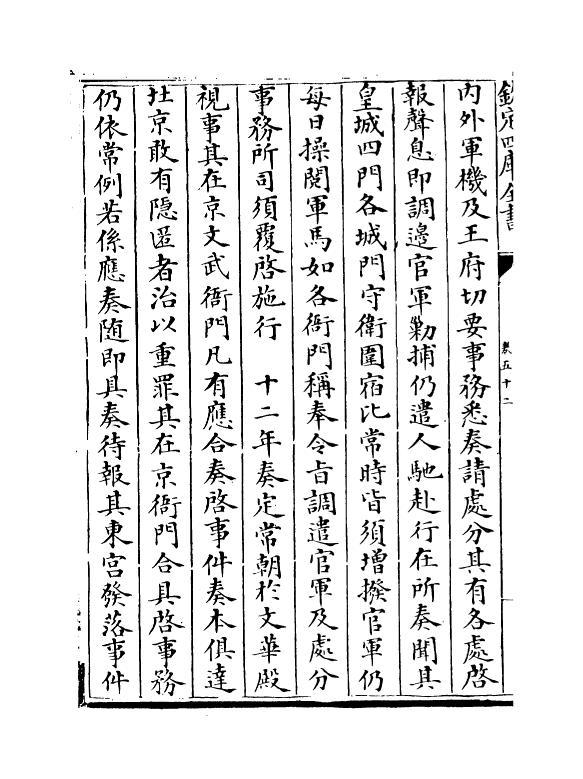 欽定四庫全書
卷五十二
内外軍機及王府切要事務悉奏請處分其有各處啓
報聲息即調邉官軍勦捕仍遣人馳赴行在所奏聞其
皇城四門各城門守衛圍宿比常時皆須增撥官軍仍
每日操閱軍馬如各衙門稱奉令旨調遣官軍及處分
事務所司須覆啓施行　十二年奏定常朝於文華殿
視事其在京文武衙門凡有應合奏啓事件奏本俱達
在京敢有隠匿者治以重罪其在京衙門合具啓事務
仍依常例若係應奏随即具奏待報其東宫發落事件